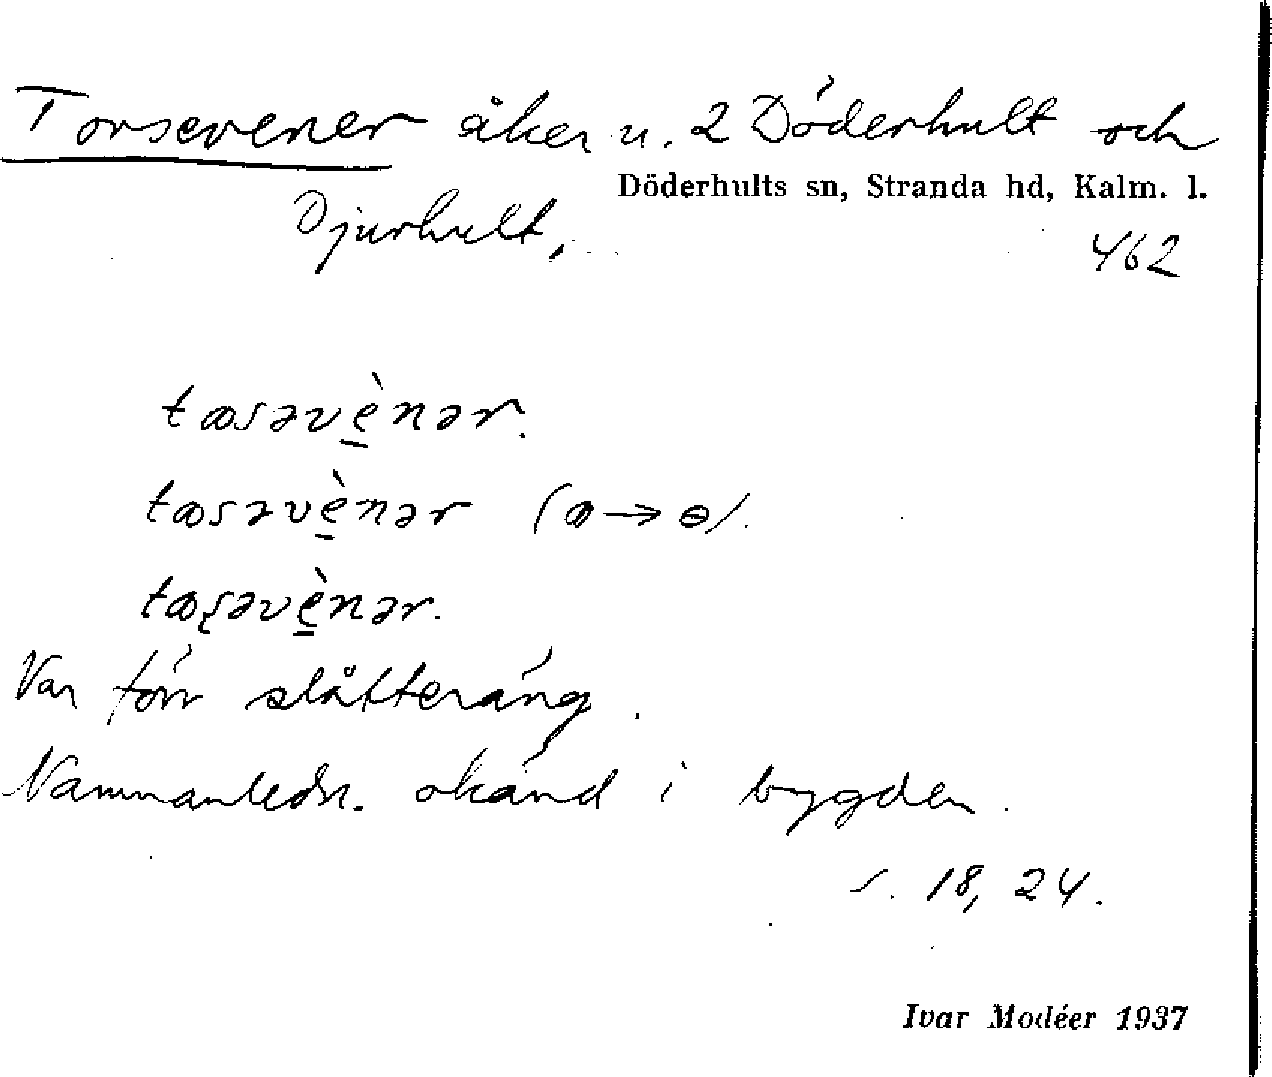 Torsevener åker u. 2 Döderhult och
Döderhults sn, Stranda hd, Kalm. l.
Djurhult.
462
tɷsəvènər.
tɷsəvènər (ɷ→ɵ).
tɷʂəvènər.
Var förr slåtteräng.
Namnanledn. okänd i bygden.
s. 18, 24.
Ivar Modéer 1937